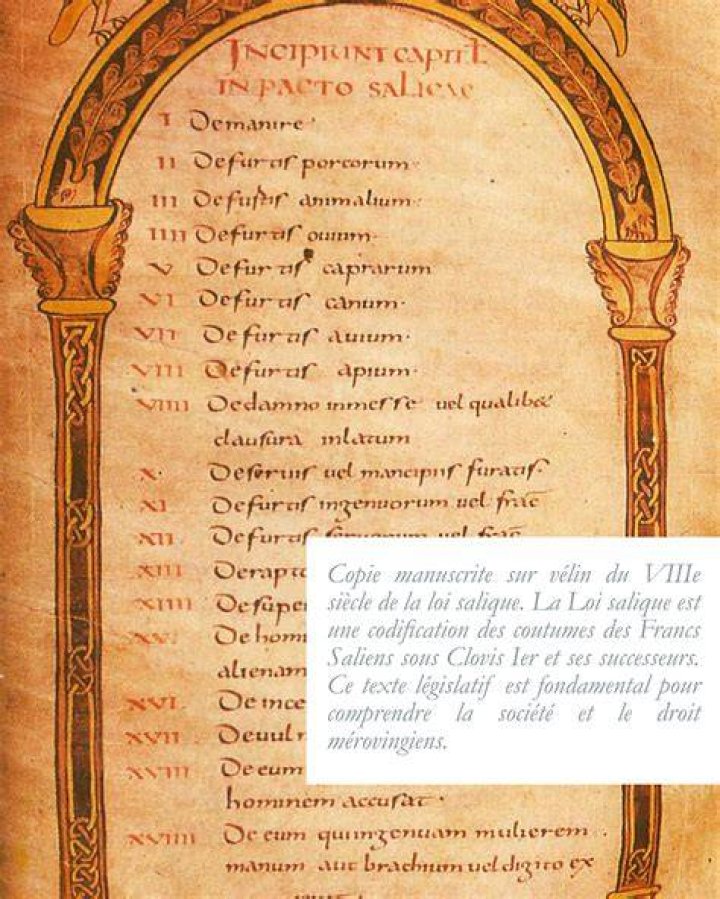 INCIPIUNT CAPITL
IN PACTO SALICAE
I Demanire
II Defurtis porcorum
III Defurtis animalium
IIII Defurtis ouium
V Defurtis caprarum
VI Defurtis canum
VII Defurtis auium
VIII Defurtis apium
VIIII Dedamno inmesse uel qualibet
clausura inlatum
X Deseruis uel mancipiis furatis
XI Defurtis ingenuorum uel fract
XII Defurtis seruorum uel fract
XIII Derapto
XIIII Desuper
XV Dehom
alienam
XVI De ince
XVII Deuul
XVIII De eum
hominem accusat
XVIIII De eum quiingenuam mulierem
manum aut brachium uel digito ex
Copie manuscrite sur vélin du VIIIe
siècle de la loi salique. La Loi salique est
une codification des coutumes des Francs
Saliens sous Clovis Ier et ses successeurs.
Ce texte législatif est fondamental pour
comprendre la société et le droit
mérovingiens.